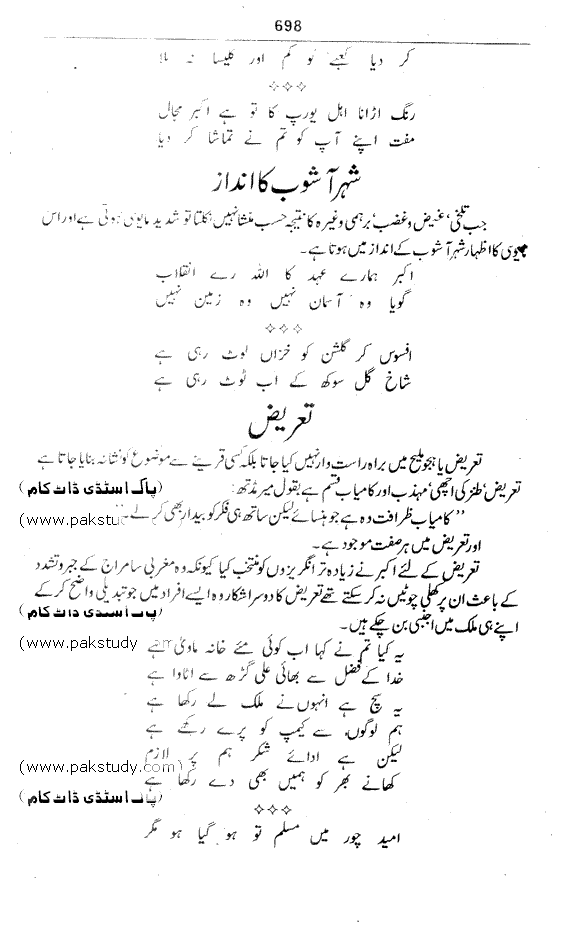 698
کر دیا کعبے کو گم اور کلیسا نہ ملا
رنگ اڑانا اہل یورپ کا تو ہے اکبر محال
مفت اپنے آپ کو تم نے تماشا کر دیا
شہر آشوب کا انداز
جب تلخی، غیض و غضب، برہمی وغیرہ کا نتیجہ حسب منشا نہیں نکلتا تو شدید مایوی ہوتی ہے اور اس
کا اظہار شہر آشوب کے انداز میں ہوتا ہے۔
اکبر ہمارے عہد کا اللہ رے انقلاب
گویا وہ آسمان نہیں وہ زمین نہیں
افسوس کر گلشن کو خزاں لوٹ رہی ہے
شاخ گل سوکھ کے اب ٹوٹ رہی ہے
تعریض
تعریض یا ہجو ملیح میں براہ راست وار نہیں کیا جاتا بلکہ کسی قرینے سے موضوع کو نشانہ بنایا جاتا ہے
تعریض، طنز کی اچھی، مہذب اور کامیاب قسم ہے بقول میرڈتھ: (پاک اسٹڈی ڈاٹ کام)
"کامیاب ظرافت وہ ہے جو ہنسائے لیکن ساتھ ہی فکر کو بیدار بھی کر لے۔" (www.pakstud
اور تعریض میں ہر صفت موجود ہے۔
تعریض کے لئے اکبر نے زیادہ تر انگریزوں کو منتخب کیا کیونکہ وہ مغربی سامراج کے جبر و تشدد
کے باعث ان پر کھلی چوٹیں نہ کر سکتے تھے تعریض کا دوسرا شکار وہ ایسے افراد میں جو تبدیلی واضح کر کے
اپنے ہی ملک میں اجنبی بن چکے ہیں۔ (پاک اسٹڈی ڈاٹ کام
یہ کیا تم نے کہا اب کوئی نئے خانہ ماویٰ ہے (www.pakstudy
خدا کے فضل سے بھائی علی گڑھ سے اٹاوا ہے
یہ سچ ہے انہوں نے ملک لے رکھا ہے
ہم لوگوں سے کیمپ کو پرے رکھے ہے
لیکن ہے ادائے شکر ہم پر لازم
کھانے بھر کو ہمیں بھی دے رکھا ہے (www.pakstudy.com)
(پاک اسٹڈی ڈاٹ کام)
امید چور میں مسلم تو ہو گیا ہو مگر